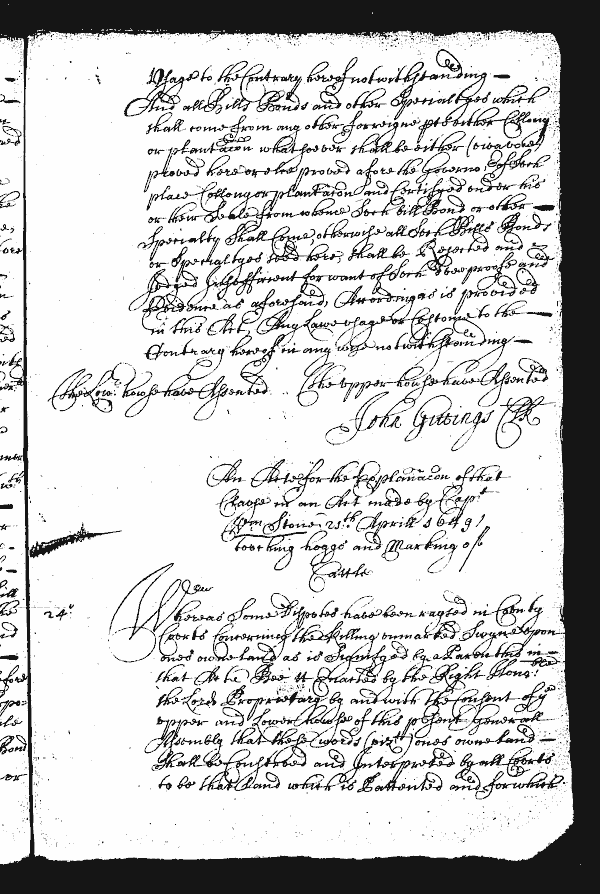 Usage to the Contrary hereof notwithstanding —
And all Bills Bonds and other Specialtyes which
shall come from any other forreigne pts either Collony
or plantacon whatsoever shall be either
proved here or else proved afore the Governor of Such
place Collony or plantacon and Certifyed under his
or their Seale from whence Such bill Bond or other —
Specialty Shall Come, otherwise all Such Bills Bonds
or Specialtyes used here, shall be Rejected and
Judged Insufficient for want of Such proofe and
Evidence as aforesaid, According as is provided
in this Act, Any Lawe usage or Custome to the —
Contrary hereof in any wise notwithstanding —
The Lowr house have Assented The upper house have Assented
John Gittings Clk
An Acte for the Explanacon of that
Clause in an Act made by Capt
Wm Stone 21th Aprill 1649
touching hoggs and Marking of
Cattle
24°
Whereas Some Disputes have been raysed in County
Corts Concerning the Killing unmarked Swyne upon
ones owne land as is Signifyed by a Paron this in
that Act Bee it Enacted by the Right Honble
the Lord Proprietary by and with the Consent of ye
upper and Lower house of this psent Generall
Assembly that these words (vizt) ones owne land —
Shall be Construed and Interpreted by all Corts
to be that Land which is Pattented and for which